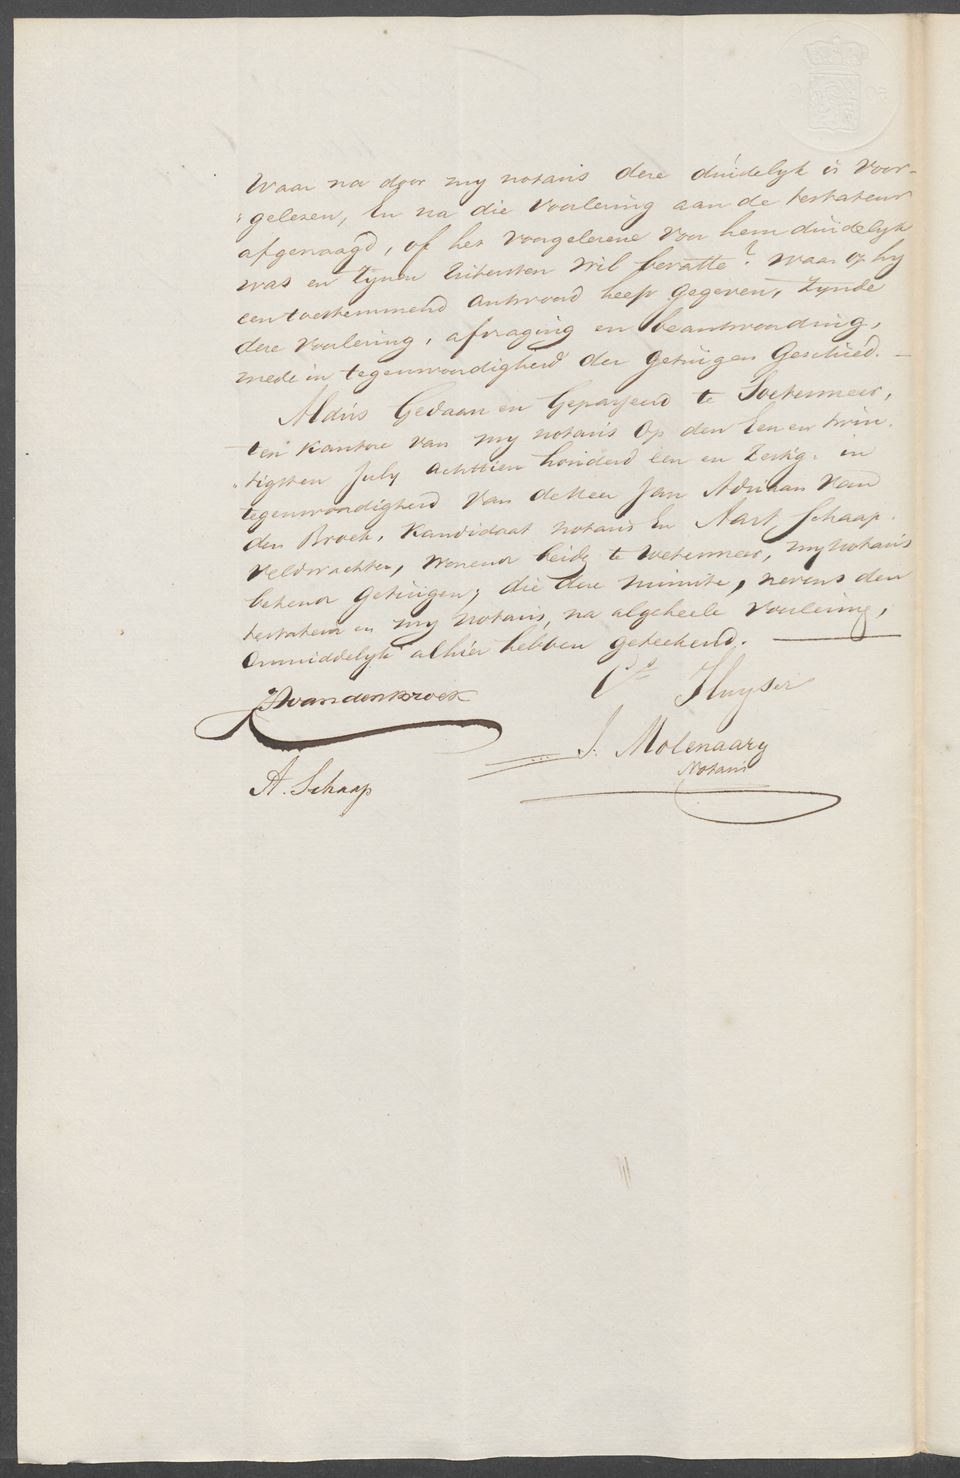 Waar na door my notaris dese duidelyk is voor-
gelezen, En na die voorlezing aan de testateur
afgevraagd, of het voorgelezene voor hem duidelyk
was en zynen uitersten wil bevatte? waar op hy
een toestemmend antwoord heeft gegeven, zynde
deze voorlezing, afvraging en beantwoording,
mede in tegenwoordigheid der getuigen Geschied. —
Aldus Gedaan en Gepasseerd te Soetermeer,
ten kantore van my notaris op den Een en twin-
tigsten July achttien honderd een en zestig. in
tegenwoordigheid van de Heer Jan Adriaan Van
den Broek, Kandidaat notaris En Aart Schaap
veldwachter, wonend beide te Zoetermeer, my notaris
bekend getuigen, die deze minute, nevens den
testateur en my notaris, na algeheele voorlezing,
Onmiddelyk alhier hebben geteekend. —
Cs Huyser
JA van den Broek
J. Molenaary
Notaris
A. Schaap
50